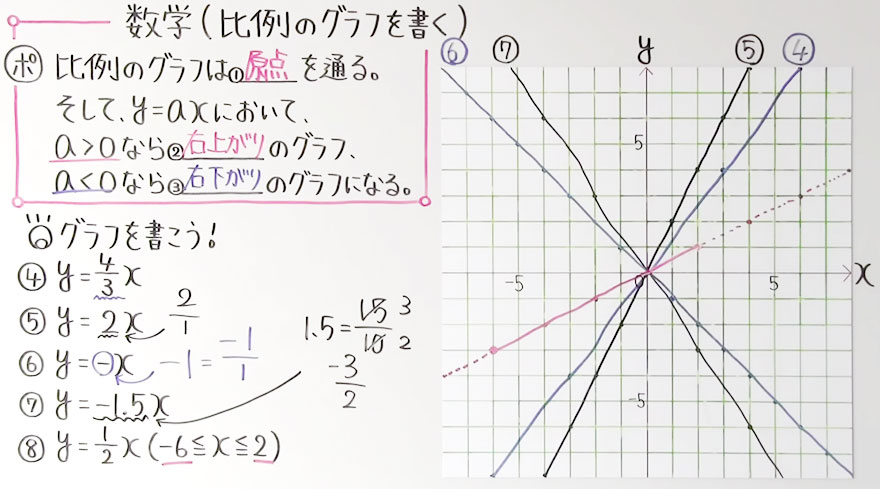 数学(比例のグラフを書く)
ポ 比例のグラフは①原点を通る。
そして、y=axにおいて、
a>0なら②右上がりのグラフ、
a<0なら③右下がりのグラフになる。
グラフを書こう!
④ y=4/3x
⑤ y=2x 2/1
⑥ y=-x -1=-1/1
⑦ y=-1.5x
1.5=15/10 3 2
-3/2
⑧ y=1/2x(-6≦x≦2)
⑥ ⑦ y ⑤ ④
5
-5 0 5 x
-5